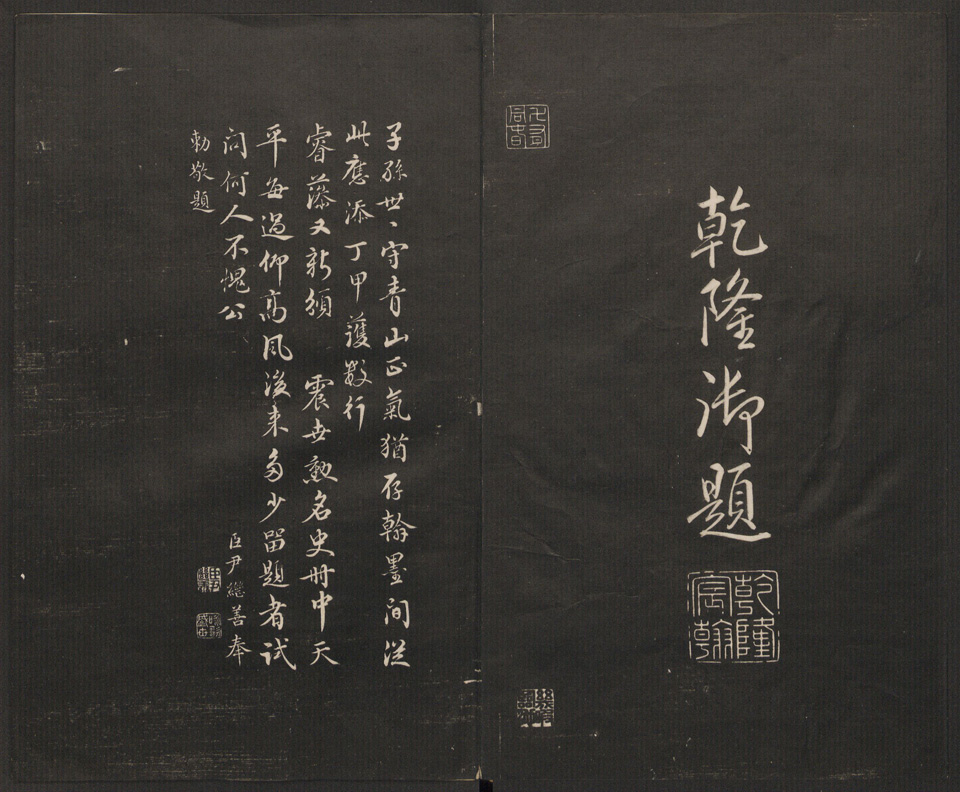 乾隆御題
乾隆宸翰
子孫世〻守青山正氣猶存翰墨間從
此應添丁甲護數行
睿藻又新頒　震世勲名史冊中天
平每過仰高風後来多少留題者試
问何人不愧公　臣尹繼善奉
勅敬題